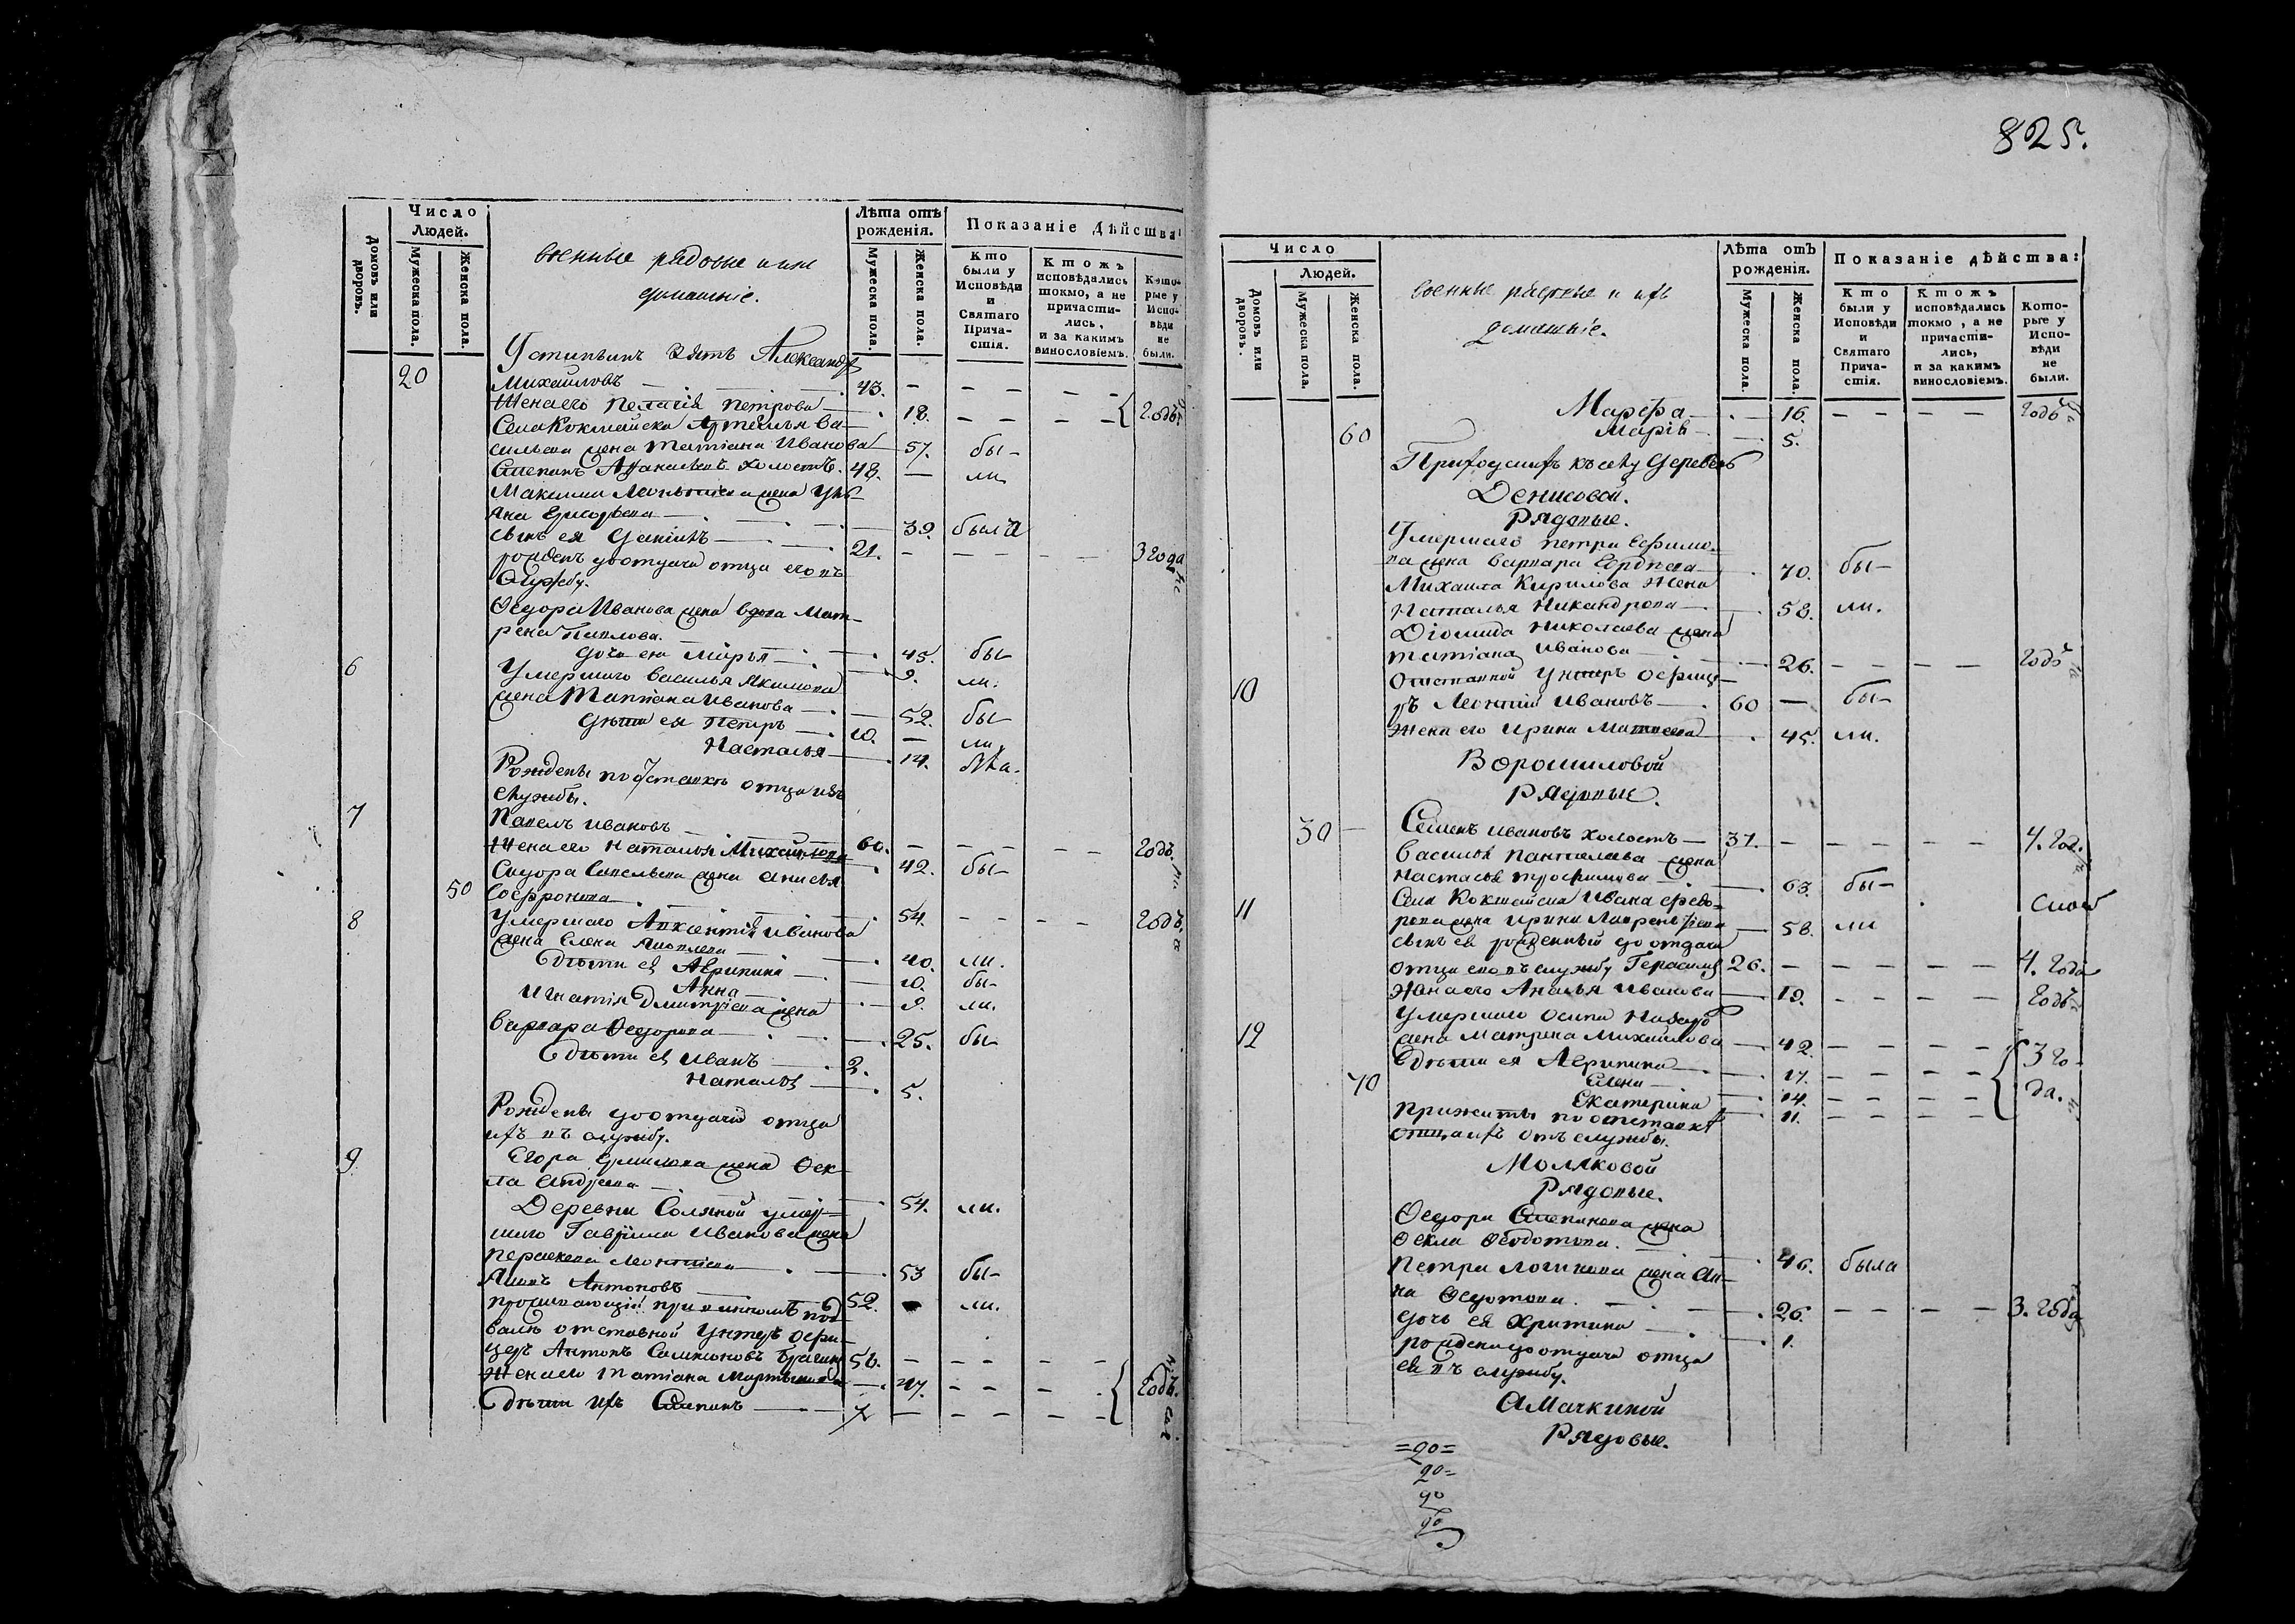 825.
Домовъ или дворовъ.
Число Людей.
Мужеска пола.
Женска пола.
военные рядовые и их
домашніе.
Лѣта отъ рожденія.
Мужеска пола.
Женска пола.
Показаніе дѣйства:
Кто были у Исповѣди и Святаго Причастія.
Ктожъ исповѣдались токмо, а не причастились, и за какимъ винословіемъ.
Которые у Исповѣди не были.
зять Александр
20 Михайловъ 43.
Жена его Пелагія Петрова 18. годъ
Села Кокшайска Артемья Ва-
сильева жена Татіана Иванова 57. бы-
Степанъ холостъ. 48. ли
Максима жена Улі-
яна Григорьева 39. была
сынъ ея Даніилъ 21. 3 года
рожденъ до отдачи отца его въ
службу.
Ѳедора Иванова жена вдова Мат-
рена Павлова. 45. бы
дочь ея Марья 9. ли.
6 Умершаго Василья Якимова
жена Татіана Иванова 52. бы
дѣти ея Петръ 10. ли.
Настасья 14.
Рождены по отставкѣ отца изъ
службы.
7 Павелъ Ивановъ 60. годъ.
Жена его Наталья Михайлова 42. бы
Сидора Савельева жена Анисья
50 Софронова 54. годъ
8 Умершаго Авксентія Иванова
жена Елена 40. ли.
Дѣти ея Агрипина 10. бы
Анна 9. ли.
Игнатія Дмитріева жена
Варвара Ѳедорова 25. бы
Дѣти ея Иванъ 2.
Наталья 5.
Рождены до отдачи отца
ихъ въ службу.
9 Егора Ермилова жена Ѳек-
ла Андреева 54. ли.
Деревни умер-
шаго Гаврила Иванова жена
Перасковья Леонтіева 53 бы
Антоновъ 52. ли.
проживающій при винномъ под-
валѣ отставной Унтеръ Офи-
церъ Антонъ 56.
Жена его Татіана Мартынова 47. годъ.
Дѣти ихъ Степанъ 7
Домовъ или дворовъ.
Число Людей.
Мужеска пола.
Женска пола.
военные рядовые и ихъ
домашніе.
Лѣта отъ рожденія.
Мужеска пола.
Женска пола.
Показаніе дѣйства:
Кто были у Исповѣди и Святаго Причастія.
Ктожъ исповѣдались токмо, а не причастились, и за какимъ винословіемъ.
Которые у Исповѣди не были.
Марѳа 16. годъ
60 Марія 5.
къ селу деревень
Денисовой.
Рядовые.
Умершаго Петра Ефимо-
ва жена Варвара 70. бы-
Михаила Кирилова жена
Наталья Никандрова 58. ли.
Діомида Николаева жена
Татіана Иванова 26. годъ
10 Отставной Унтеръ Офице-
ръ Леонтій Ивановъ 60 бы-
Жена его Ирина Матвеева 45. ли.
Ворошиловой
Рядовые.
30 Семенъ Ивановъ холостъ 37. 4. год.
Василья Пантелеева жена
Настасья Трофимова 63. бы-
11 Села Кокшайска Ивана Федо-
рова жена Ирина Лаврентіева 58. ли
сынъ ея рожденный до отдачи
отца его въ службу Герасимъ 26. 4. года
Жена его Иванова 19. годъ
Умершаго Осипа
12 жена Матрена Михайлова 42. 3 го-
Дѣти ея Агрипина 17. да.
70 Елена 14.
Екатерина 11.
Прижиты по отставкѣ
отца ихъ отъ службы.
Моляковой
Рядовые.
Ѳедора Степанова жена
Ѳекла Ѳедотова. 46. была
Петра Логинова жена Ан-
на Ѳедотова. 26. 3. года
дочь ея Христина 1.
рождена до отдачи отца
ея въ службу.
Амачкиной
Рядовые.
=90=
90=
90
90